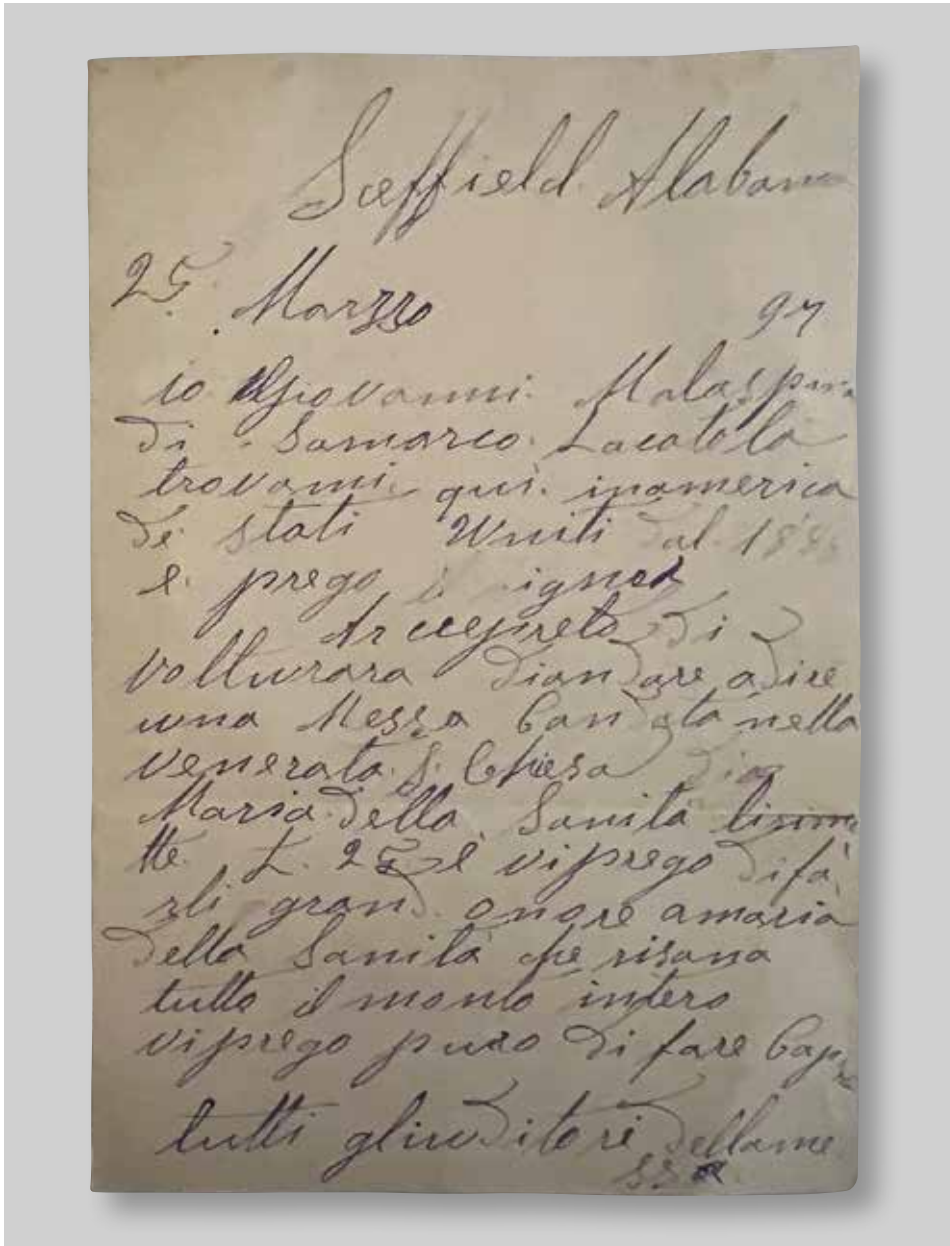 Seffield Alabama
25 Marzzo 97
io Giovanni Malaspina
di Samarco Lacatola
trovami qui inamerica
de stati Uniti dal
e prego signor
Arcceprete di
volturara diandare adire
una Messa Candata nella
venerata S. Chiesa dia
Maria della Sanità limme
tte L. 25 e viprego difà
rli grand onore amaria
della Sanità che risana
tutto il monto intero
viprego puro di fare Capire
tutti gliuditori dellame
ssa